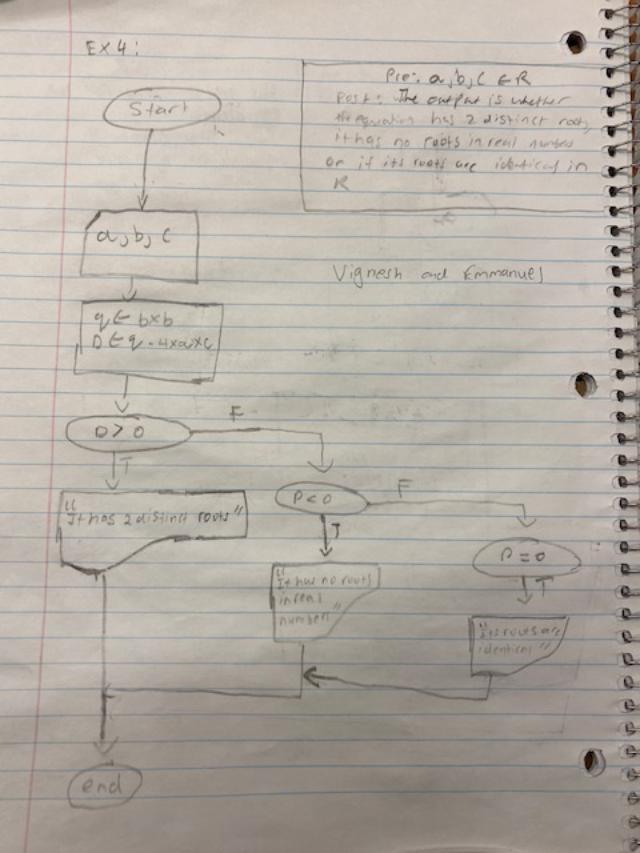 EX 4:
Pre: a, b, c ∈ R
Post: The output is whether
the equation has 2 distinct roots,
it has no roots in real numbers
or if its roots are identical in
R
Start
a, b, c
Vignesh and Emmanuel
q ← b×b
D ← q - 4×a×c
D > 0
F
T
D < 0
F
T
D = 0
T
"It has 2 distinct roots"
"It has no roots
in real
numbers"
"Its roots are
identical"
end